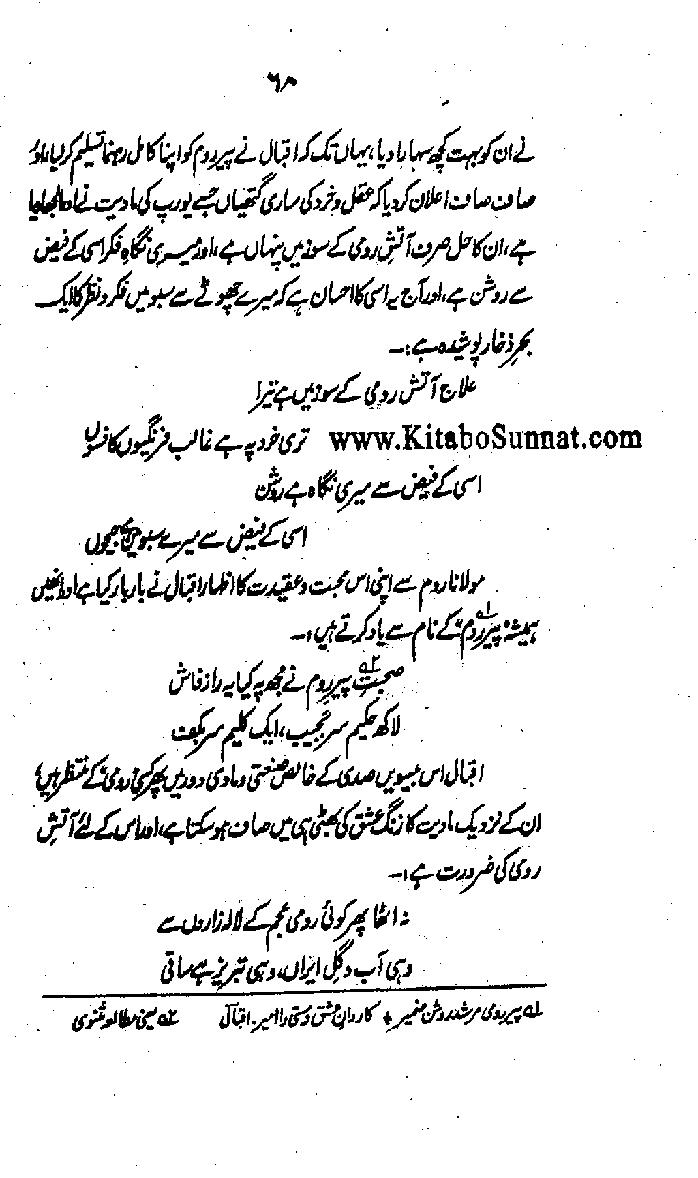 ۶۸
نے ان کو بہت کچھ سہارا دیا، یہاں تک کہ اقبال نے پیر روم کو اپنا کامل رہنما تسلیم کر لیا، اور
صاف صاف اعلان کر دیا کہ عقل و خرد کی ساری گتھیاں جسے یورپ کی مادیت نے اور الجھا دیا
ہے، ان کا حل صرف آتش رومی کے سوز میں پنہاں ہے، اور میری نگاہِ فکر اسی کے فیض
سے روشن ہے، اور آج یہ اسی کا احسان ہے کہ میرے چھوٹے سے سبو میں فکر و نظر کا ایک
بحرِ ذخار پوشیدہ ہے:-
علاج آتش رومی کے سوز میں ہے تیرا
تری خرد پہ ہے غالب فرنگیوں کا فسوں www.KitaboSunnat.com
اسی کے فیض سے میری نگاہ ہے روشن
اسی کے فیض سے میرے سبو میں ہے جیحوں
مولانا روم سے اپنی اس محبت و عقیدت کا اظہار اقبال نے بار بار کیا ہے اور انھیں
ہمیشہ "پیر روم"۱؎ کے نام سے یاد کرتے ہیں:-
صحبتِ۲؎ پیرِ روم نے مجھ پہ کیا یہ راز فاش
لاکھ حکیم سر بجیب، ایک کلیم سر بکف
اقبال اس بیسویں صدی کے خالص صنعتی و مادی دور میں پھر کسی "رومی" کے منتظر ہیں،
ان کے نزدیک مادیت کا زنگ عشق کی بھٹی ہی میں صاف ہو سکتا ہے، اور اس کے لئے آتشِ
رومی کی ضرورت ہے:-
نہ اٹھا پھر کوئی رومی عجم کے لالہ زاروں سے
وہی آب و گلِ ایراں، وہی تبریز ہے ساقی
۱؎ پیر رومی مرشد روشن ضمیر + کاروانِ عشق و مستی را امیر۔ اقبال ۲؎ یعنی مطالعہ مثنوی